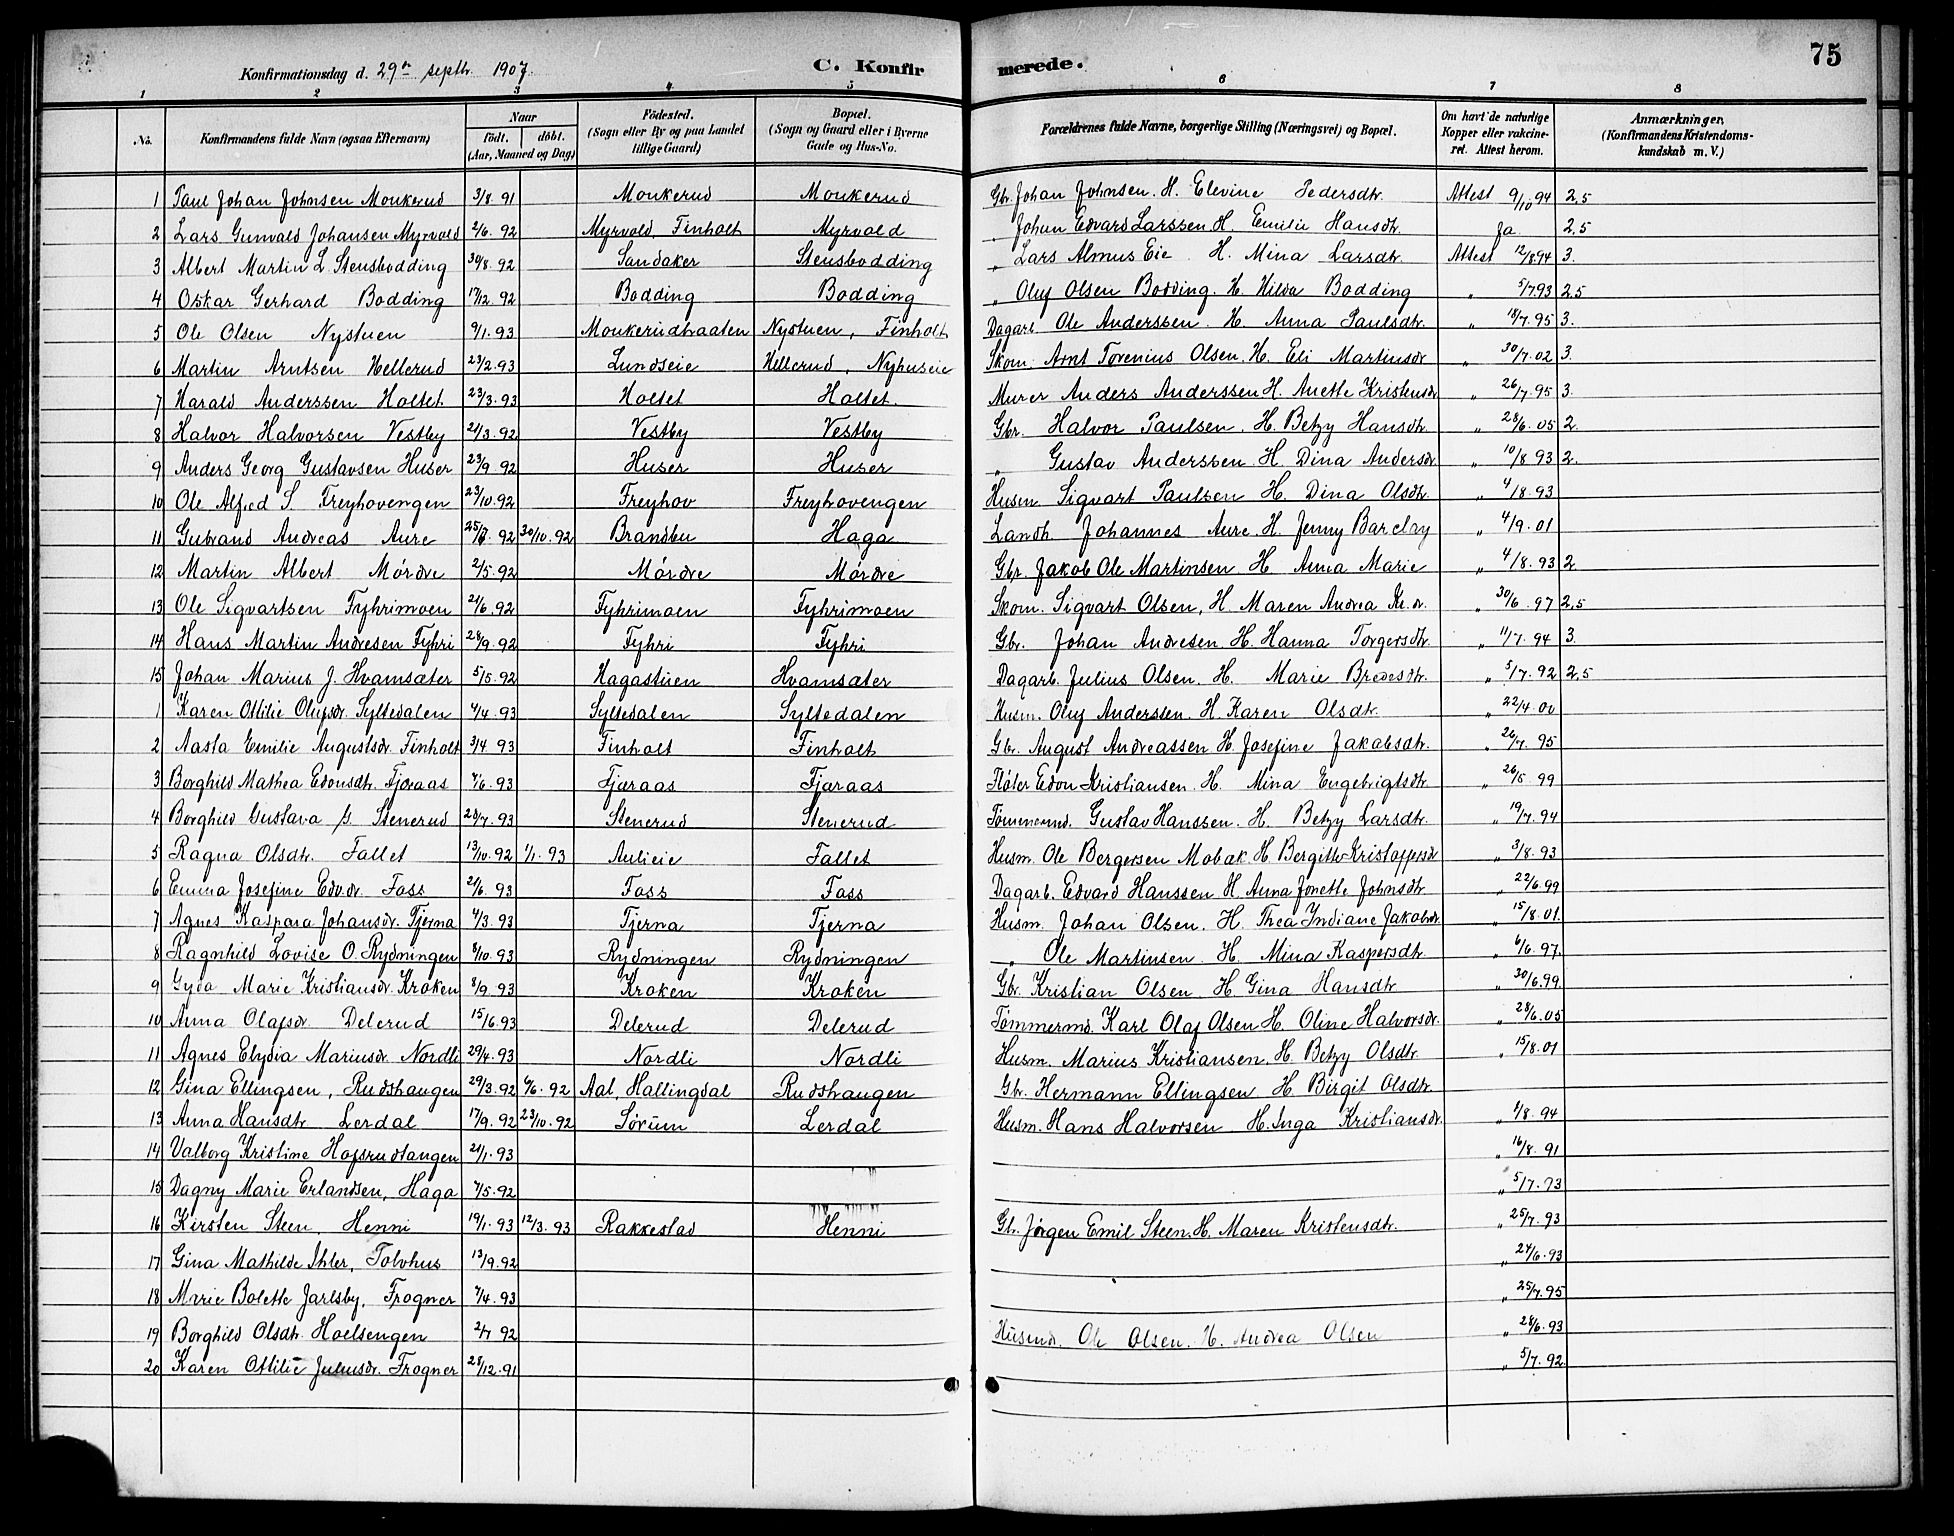 Konfirmationsdag d. 29de septbr. 1907. C. Konfir merede. 75
1 2 3 4 5 6 7 8
No. Konfirmandens fulde Navn (ogsaa Efternavn) Naar födt. döbt. (Aar, Maaned og Dag) Födested. (Sogn eller By og paa Landet tillige Gaard) Bopæl. (Sogn og Gaard eller i Byerne Gade og Hus-No. Forældrenes fulde Navne, borgerlige Stilling (Næringsvei) og Bopæl. Om havt de naturlige Kopper eller vakcineret. Attest herom. Anmærkninger, (Konfirmandens Kristendomskundskab m. V.)
1 Paul Johan Johnsen Moukerud 3/8 91 Moukerud Moukerud Gbr. Johan Johnsen. H. Elevine Pedersdtr. Attest 9/10 94 2,5
2 Lars Gunvald Johansen Myrvold 2/6. 92 Myrvold, Finholt Myrvold " Johan Edvard Larssen H. Emilie Hansdtr. Ja 2,5
3 Albert Martin L. Stensbodding 30/8. 92 Sandaker Stensbodding " Lars Almus Eie H. Mina Larsdtr. Attest 12/8 94 3.
4 Oskar Gerhard Bodding 17/12. 92 Bodding Bodding " Oluf Olsen Bodding. H. Hilda Bodding " 5/7 93 2,5
5 Ole Olsen Nystuen 9/1. 93 Moukerudbraaten Nystuen, Finholt Dagarb. Ole Anderssen. H. Anna Paulsdtr. " 18/7. 95 3.
6 Martin Arntsen Hellerud 23/2. 93 Lundseie Hellerud, Nyhuseie Skom. Arnt Torenius Olsen. H. Eli Martinsdr " 30/7. 02 3.
7 Harald Anderssen Holtet 23/3. 93 Holtet Holtet. Murer Anders Anderssen H. Anette Kristensdr " 26/7. 95 3.
8 Halvor Halvorsen Vestby 21/3. 92 Vestby Vestby Gbr. Halvor Paulsen. H. Betzy Hansdtr. " 28/6. 05 2.
9 Anders Georg Gustavsen Huser 23/9. 92 Huser Huser " Gustav Anderssen. H. Dina Andersdr. " 10/8 93 2.
10 Ole Alfred S. Freyhovengen 23/10. 92 Freyhov Freyhovengen Husm. Sigvart Paulsen H. Dina Olsdtr. " 4/8. 93
11 Gubrand Andreas Aure 25/7. 92 30/10. 92 Brandbu Haga Landh. Johannes Aure. H. Jenny Barclay " 4/9. 01
12 Martin Albert Mórdre 2/5. 92 Mórdre Mórdre Gbr. Jakob Ole Martinsen H. Anna Marie " 4/8. 93 2
13 Ole Sigvartsen Fyhrimoen 21/6. 92 Fyhrimoen Fyhrimoen Skom. Sigvart Olsen, H. Maren Andrea Kr. dr. " 30/6. 97 2,5
14 Hans Martin Andresen Fyhri 28/9. 92 Fyhri Fyhri Gbr. Johan Andresen H. Hanna Torgersdtr " 11/7. 94 3.
15 Johan Marius J. Hvamsæter 5/5. 92 Hagastuen Hvamsæter Dagarb. Julius Olsen. H. Marie Bredesdtr. " 5/7. 92 2,5
1 Karen Otilie Olufsdr. Syltedalen 4/4. 93 Syltedalen Syltedalen Husm. Oluf Anderssen. H. Karen Olsdtr. " 22/4. 00
2 Aasta Emilie Augustsdr. Finholt 3/4 93 Finholt Finholt Gbr. August Andreassen H. Josefine Jakobsdtr. " 26/7. 95
3 Borghild Mathea Edonsdtr. Fjæraas 7/6. 93 Fjæraas Fjæraas Flóter Edon Kristiansen. H. Mina Engebrigtsdtr " 26/5. 99
4 Borghild Gustava G. Stenerud 28/7. 93 Stenerud Stenerud Tómmermd. Gustav Hanssen. H. Betzy Larsdtr. " 19/7. 94
5 Ragna Olsdtr. Fallet 13/10. 92 1/1. 93 Aulieie Fallet Husm. Ole Bergersen Mobæk. H. Bergitte Kristoffersdr " 3/8. 93
6 Emma Josefine Edv.dr. Foss 21/6. 93 Foss Foss Dagarb. Edvard Hanssen H. Anna Jonette Johnsdtr. " 22/6. 99
7 Agnes Kaspara Johansdr. Tjerna 4/3. 93 Tjerna Tjerna Husm. Johan Olsen. H. Thea Indiane Jakobsdr. " 15/8. 01.
8 Ragnhild Lovise O. Rydningen 8/10. 93 Rydningen Rydningen " Ole Martinsen H. Mina Kaspersdtr. " 6/6. 97.
9 Gyda Marie Kristiansdr. Kroken 8/9. 93 Kroken Kroken Gbr. Kristian Olsen H. Gina Hansdtr " 30/6. 99
10 Anna Olafsdr. Delerud 15/6. 93 Delerud Delerud Tómmermd. Karl Olaf Olsen H. Oline Halvorsdr. " 28/6. 05
11 Agnes Elydia Mariusdr. Nordli 29/4. 93 Nordli Nordli Husm. Marius Kristiansen. H. Betzy Olsdtr. " 15/8. 01
12 Gina Ellingsen, Rudshaugen 29/3. 92 6/6. 92 Aal, Hallingdal Rudshaugen Gbr. Hermann Ellingsen H. Birgit Olsdtr.
13 Anna Hansdtr. Lerdal 17/9. 92 23/10. 92 Sörum Lerdal Husm. Hans Halvorsen H. Inga Kristiansdr. " 1/8. 94
14 Valborg Kristine Hofsrudtangen 21/1. 93 " 16/8. 91
15 Dagny Marie Erlandsen, Haga 7/5. 92 " 5/7. 93
16 Kirsten Steen, Henni 19/1. 93 12/3. 93 Rakkestad Henni Gbr. Jórgen Emil Steen. H. Maren Kristensdtr. " 25/7. 93
17 Gina Mathilde Ihler, Tolvhus 13/9. 92 " 24/6. 93
18 Marie Bolette Jarlsby, Frogner 7/4. 93 " 25/7. 95
19 Borghild Olsdtr. Hoelsengen 2/7 92 Husmd. Ole Olsen. H. Andrea Olsen " 28/6. 93
20 Karen Otilie Juliusdr. Frogner 28/12. 91 " 5/7. 92